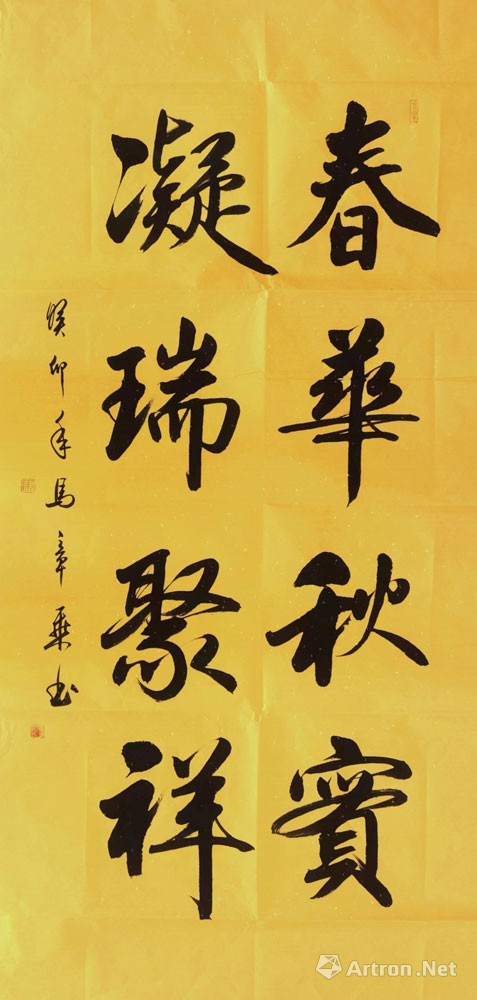 春華秋實
凝瑞聚祥
癸卯年馬章乘书
Artron.Net